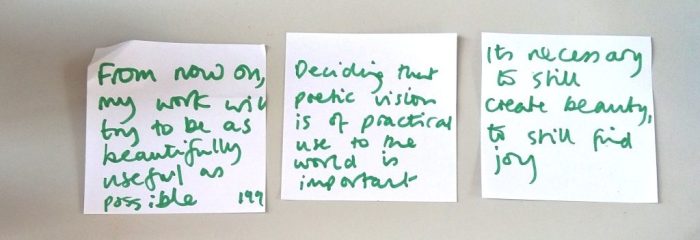 From now on,
my work will
try to be as
beautifully
useful as
possible 199
Deciding that
poetic vision
is of practical
use to the
world is
important
Its necessary
to still
create beauty,
to still find
joy